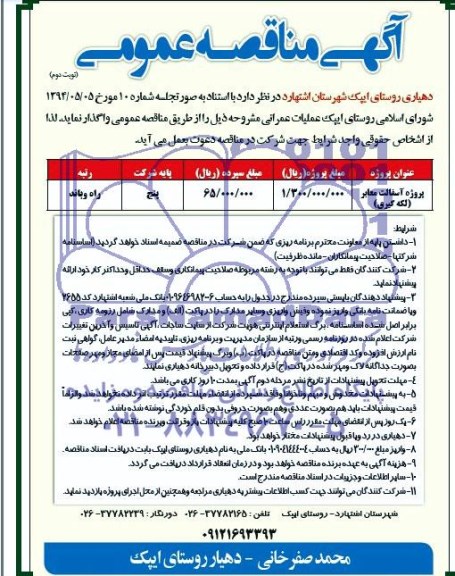 آگهی مناقصه عمومی
(نوبت دوم)
دهیاری روستای ایپک شهرستان اشتهارد در نظر دارد با استناد به صورتجلسه شماره ۱۰ مورخ ۱۳۹۴/۰۵/۰۵
شورای اسلامی روستای ایپک عملیات عمرانی مشروحه ذیل را از طریق مناقصه عمومی واگذار نماید. لذا
از اشخاص حقوقی واجد شرایط جهت شرکت در مناقصه دعوت بعمل می آید.
عنوان پروژه مبلغ پروژه(ریال) مبلغ سپرده (ریال) پایه شرکت رتبه
پروژه آسفالت معابر (لکه گیری) ۱/۳۰۰/۰۰۰/۰۰۰ ۶۵/۰۰۰/۰۰۰ پنج راه وباند
شرایط:
۱- داشتن پایه از معاونت محترم برنامه ریزی که ضمن شرکت در مناقصه ضمیمه اسناد خواهد گردید (اساسنامه
شرکتها - صلاحیت پیمانکاران - مانده ظرفیت)
۲- شرکت کنندگان فقط می توانند با توجه به رشته مربوطه صلاحیت پیمانکاری وسقف حداقل وحداکثر کار خود ارائه
پیشنهاد نمایند.
۳- پیشنهاد دهندگان بایستی سپرده مندرج در جدول را به حساب ۰۱۰۹۶۴۶۹۸۲۰۰۶ بانک ملی شعبه اشتهارد کد ۲۶۵۵
ویا ضمانت نامه بانکی واریز نموده وفیش واریزی وسایر مدارک را در پاکت (الف) و مدارک شامل رزومه کاری، کپی
برابر اصل شده اساسنامه، برگ استعلام اینترنتی هویت شرکت از سایت ساجات، آگهی تاسیس وآخرین تغییرات
شرکت اعلام شده در روزنامه رسمی ورتبه از سازمان مدیریت و برنامه ریزی، تاییدیه امضاء مدیر عامل، گواهی ثبت
نام ارزش افزوده وکد اقتصادی ومتن مناقصه در پاکت (ب) وبرگ پیشنهاد قیمت پس از امضای مجاز ومهر صفحات
بصورت جداگانه لاک ومهر شده در پاکت (ج) قرار داده و تحویل دبیرخانه دهیاری نمایند.
۴- مهلت تحویل پیشنهادات از تاریخ نشر مرحله دوم آگهی بمدت ۱۰ روز کاری می باشد.
۵- به پیشنهادات مخدوش و مبهم وناخوانا وفاقد سپرده و از انقضای مهلت مقرر ترتیب اثر داده نخواهد شد والزاماً
قیمت پیشنهادات باید هم بصورت عددی وهم بصورت حروفی بدون قلم خوردگی نوشته شده باشد.
۶- یک روز پس از انقضای مهلت مقرر راس ساعت ۱۰ صبح کلیه پیشنهادات باز وقرائت وبرنده مناقصه اعلام خواهد شد.
۷- دهیاری در رد ویا قبول پیشنهادات مختار خواهد بود.
۸- واریز مبلغ ۳۰۰/۰۰۰ ریال به حساب ۰۱۰۹۰۲۱۴۴۴۰۰۴ بانک ملی به نام دهیاری روستای ایپک بابت دریافت اسناد مناقصه.
۹- هزینه آگهی به عهده برنده مناقصه خواهد بود و در زمان انعقاد قرارداد دریافت می گردد.
۱۰- سایر اطلاعات وجزییات در اسناد مناقصه مندرج است.
۱۱- شرکت کنندگان می توانند جهت کسب اطلاعات بیشتر به دهیاری مراجعه وهمچنین از محل اجرای پروژه بازدید نماید.
شهرستان اشتهارد - روستای ایپک تلفن: ۳۷۷۸۲۱۶۵-۰۲۶ دورنگار: ۳۷۷۸۲۲۳۹-۰۲۶
۰۹۱۲۱۶۹۳۳۹۳
محمد صفرخانی - دهیار روستای ایپک
پایگاه اطلاع رسانی مناقصه و مزایده
۰۲۱-۸۸۳۴۹۶۷۰-۵